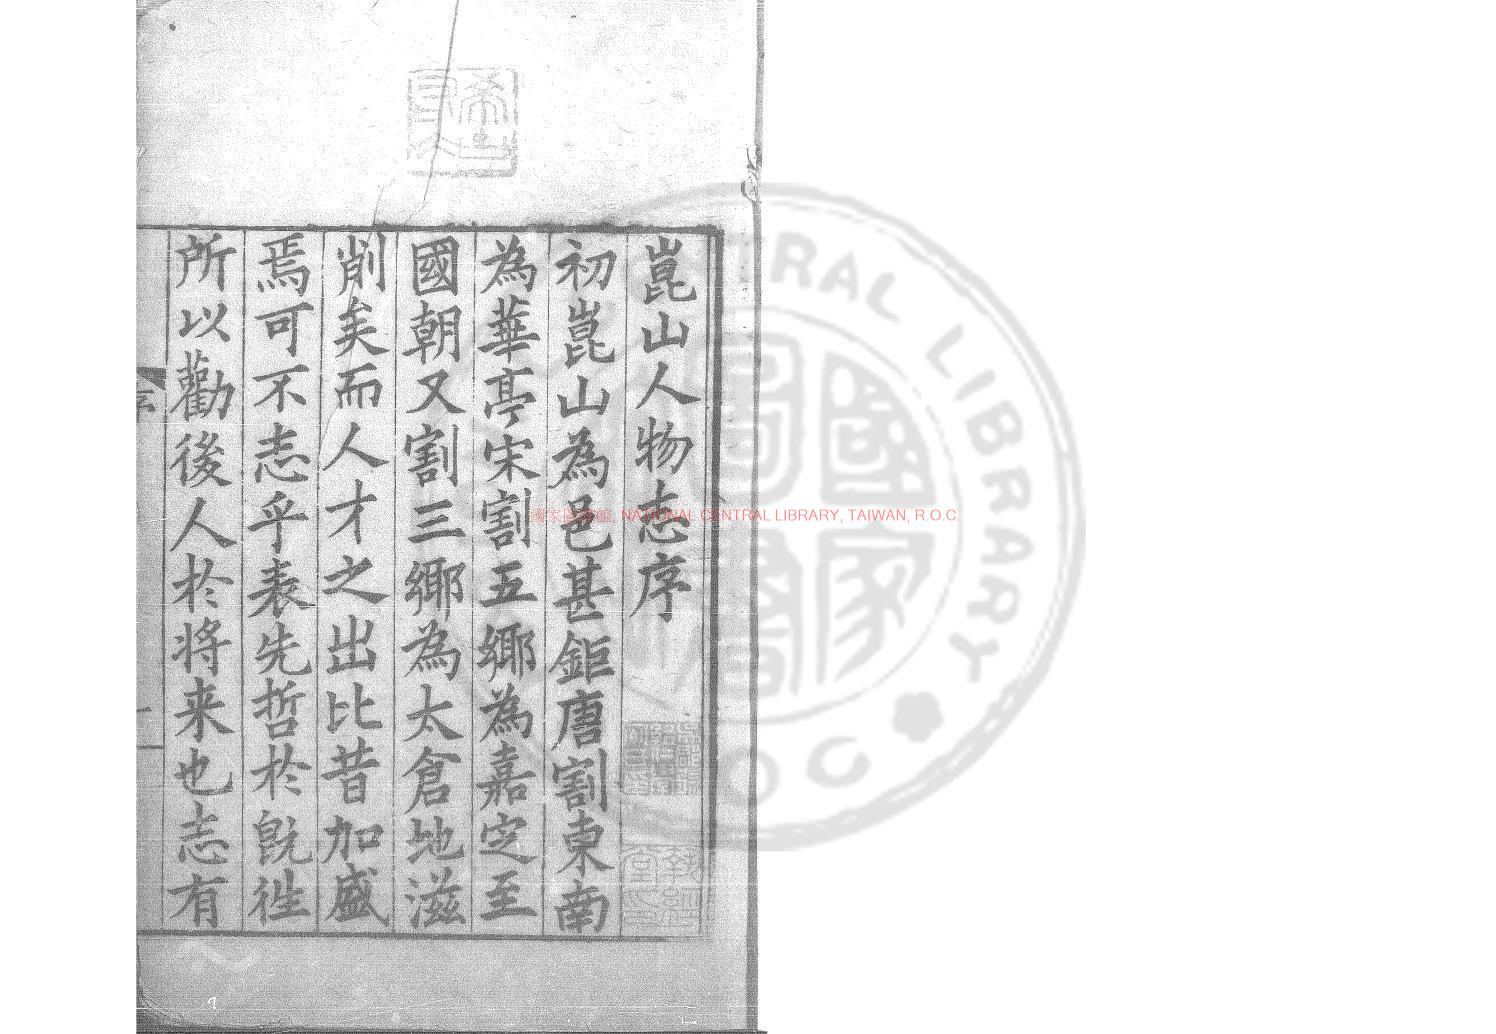 崑山人物志序
初崑山為邑甚鉅唐割東南
為華亭宋割五鄉為嘉定至
國朝又割三鄉為太倉地滋
削矣而人才之出比昔加盛
焉可不志乎表先哲於既徃
所以勸後人於将来也志有
序
一
國家圖書館, NATIONAL CENTRAL LIBRARY, TAIWAN, R.O.C.
TRAL LIBRARY